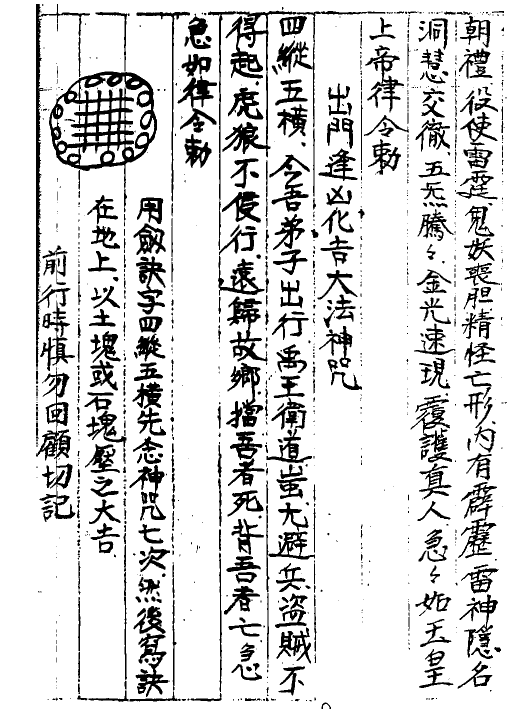 朝禮、役使雷霆、鬼妖喪胆、精怪亡形、內有霹靂、雷神隱名
洞慧交徹、五炁騰々、金光速現、覆護真人、急々如玉皇
上帝律令勅
出門逢凶化吉大法神咒
四縱五橫、今吾弟子出行、禹王衛道蚩尤避兵、盜賊不
得起、虎狼不侵行、遠歸故鄉、擋吾者死背吾者亡急
急如律令勅
用劍訣字四縱五橫先念神咒七次、然後寫訣
在地上、以土塊或石塊壓之大吉
前行時慎勿回顧切記